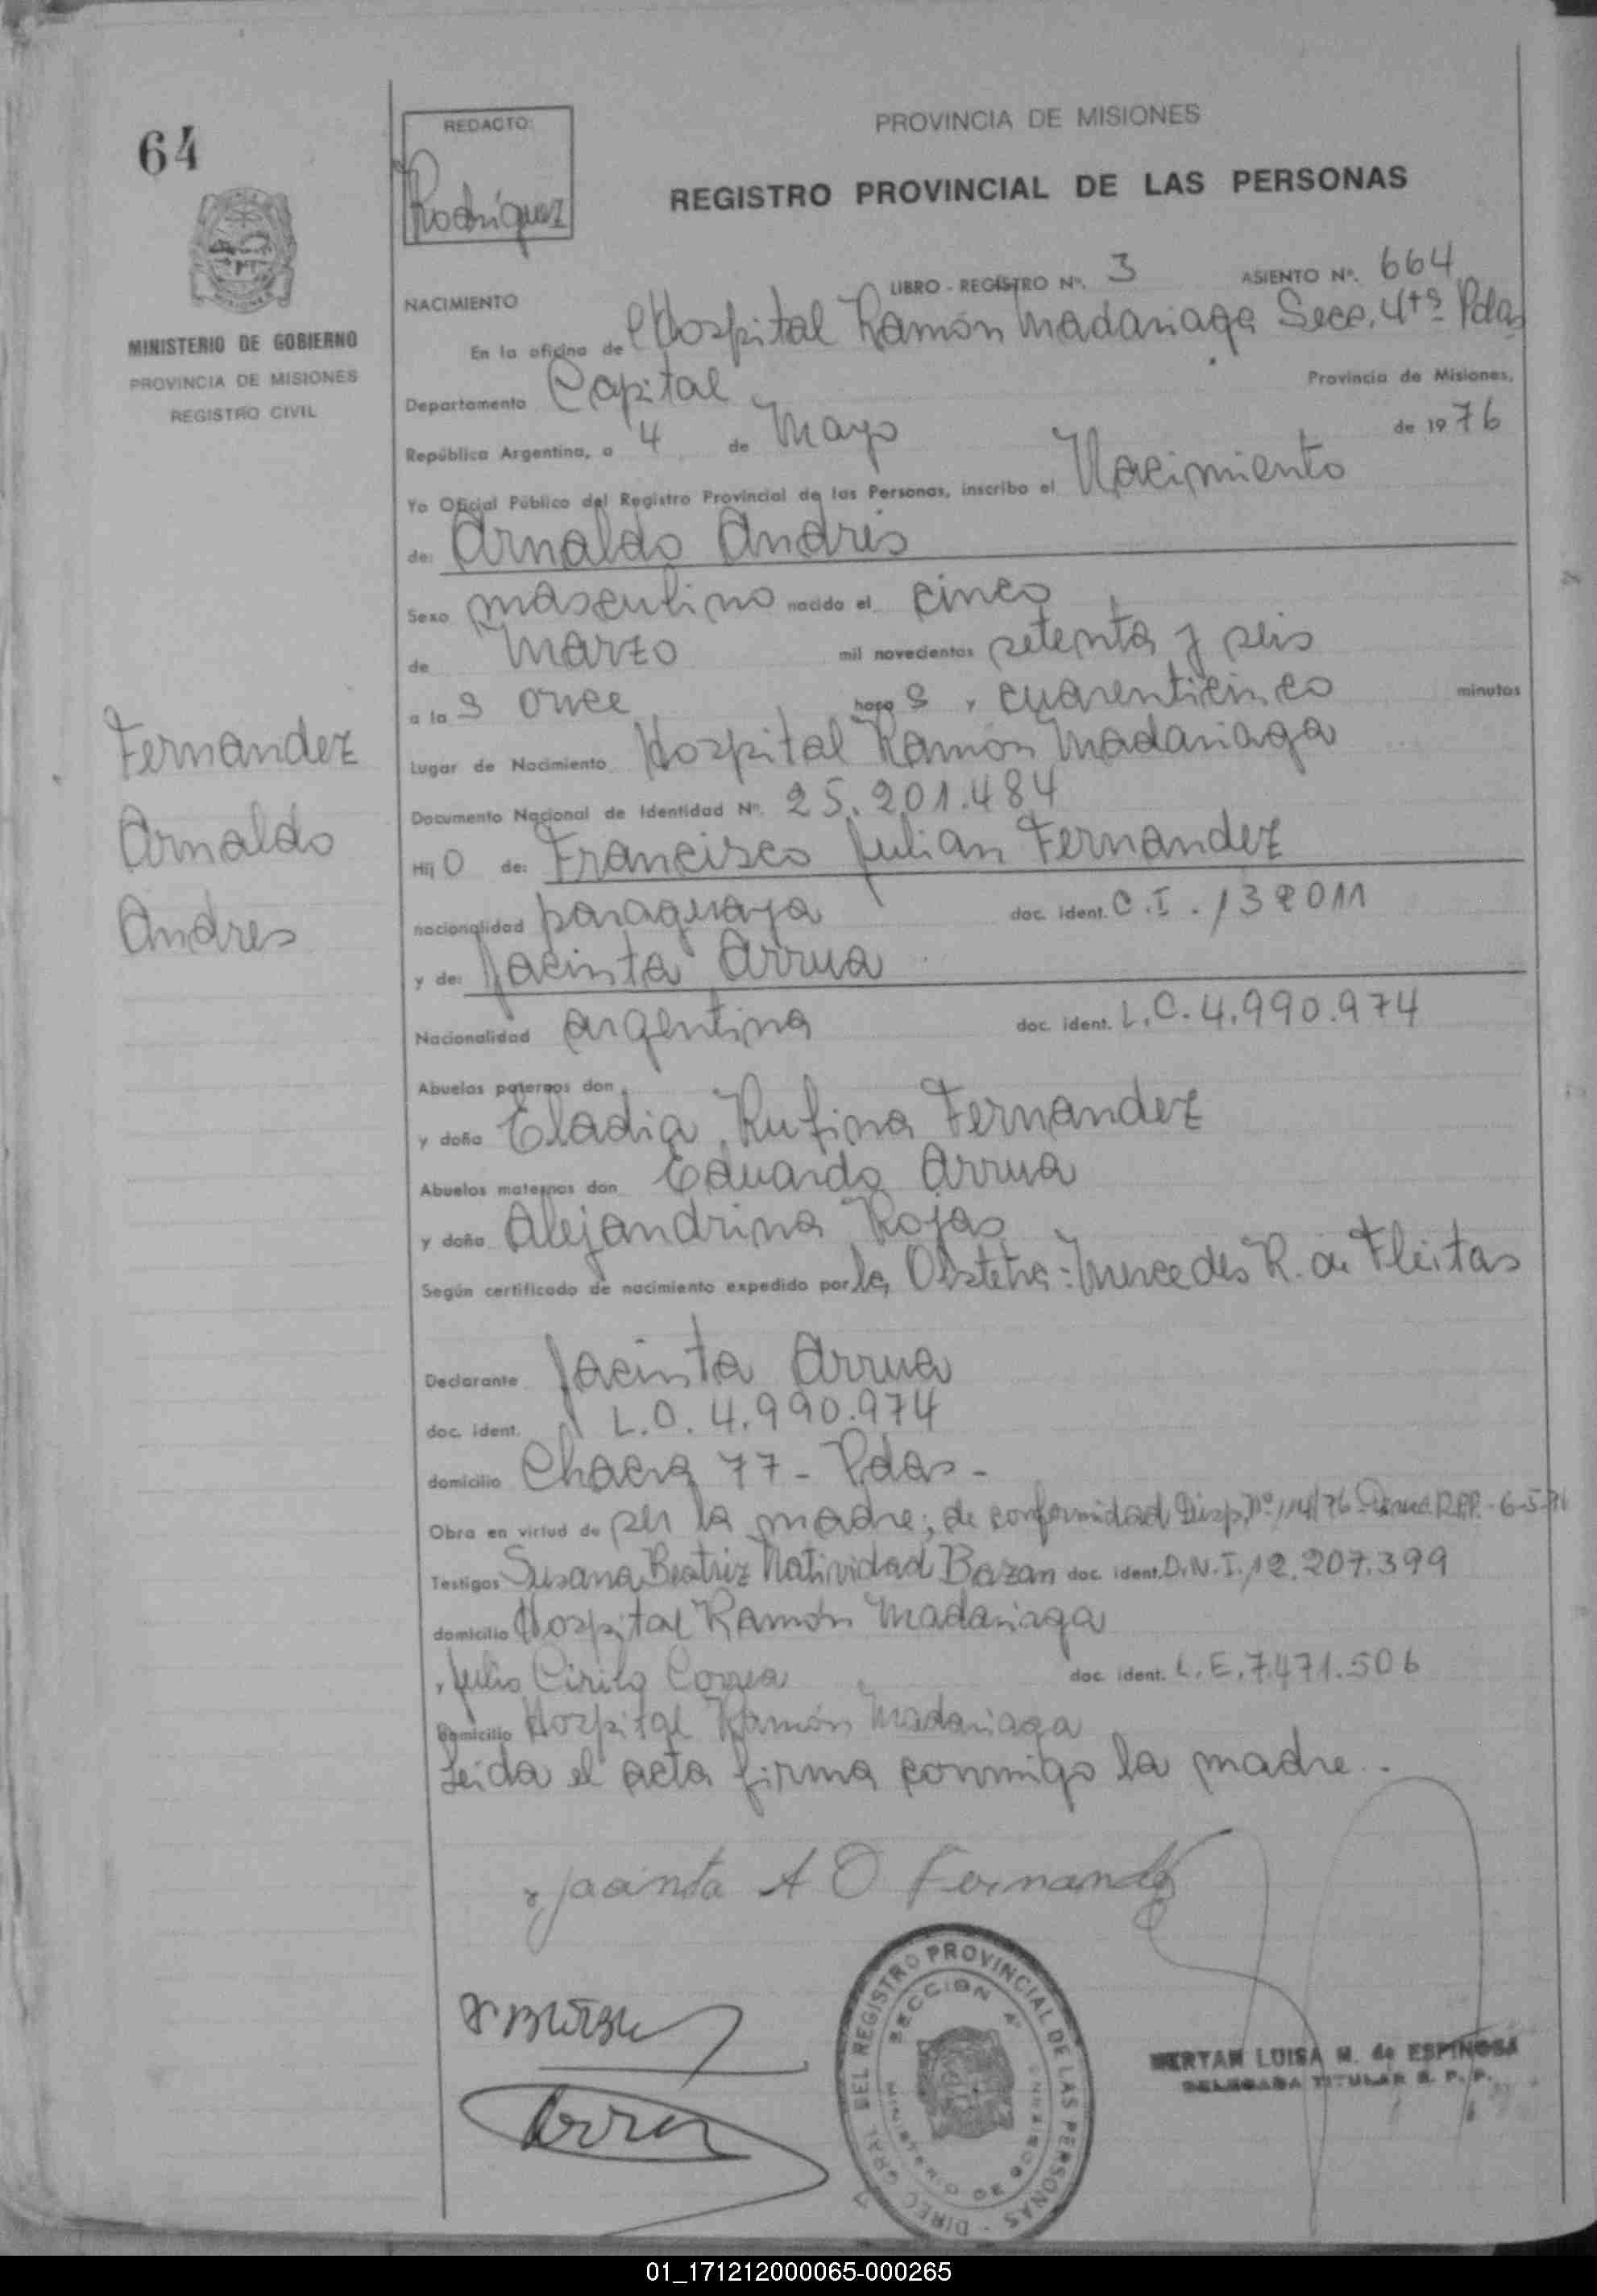 64
REDACTO:
Rodríguez
PROVINCIA DE MISIONES
REGISTRO PROVINCIAL DE LAS PERSONAS
MINISTERIO DE GOBIERNO
PROVINCIA DE MISIONES
REGISTRO CIVIL
LIBRO - REGISTRO Nº. 3 ASIENTO Nº. 664
NACIMIENTO
En la oficina de Hospital Ramón Madariaga Secc. 4tª Pdas
Departamento Capital Provincia de Misiones,
República Argentina, a 4 de Mayo de 1976
Yo Oficial Público del Registro Provincial de las Personas, inscribo el Nacimiento
de: Arnaldo Andrés
Sexo masculino nacido el cinco
de Marzo mil novecientos setenta y seis
a las once horas, cuarenticinco minutos
Lugar de Nacimiento Hospital Ramón Madariaga
Documento Nacional de Identidad Nº. 25.201.484
Hijo de: Francisco Julian Fernandez
nacionalidad paraguaya doc. ident. C.I.
y de: Jacinta Arrua
Nacionalidad argentina doc. ident. L.C. 4.990.974
Abuelos paternos don
y doña Eladia Rufina Fernandez
Abuelos maternos don Eduardo Arrua
y doña Alejandrina Rojas
Según certificado de nacimiento expedido por la Obstetra: Mercedes R. de Fleitas
Declarante Jacinta Arrua
doc. ident. L.C. 4.990.974
domicilio Chacra 77 - Pdas -
Obra en virtud de ser la madre; de conformidad Disp. Nº
Testigos Susana Beatriz Natividad Bazan doc. ident. D.N.I. 12.207.399
domicilio Hospital Ramón Madariaga
, Julio Cirilo Correa doc. ident. L.E. 7.471.506
Domicilio Hospital Ramón Madariaga
Leida el acta firma conmigo la madre..
Jacinta A D Fernandez
Fernandez
Arnaldo
Andres
DIREC. GRAL DEL REGISTRO PROVINCIAL DE LAS PERSONAS
SECCION 4ª
MINISTERIO DE GOBIERNO
MERTAN LUISA M. de ESPINOSA
DELEGADA TITULAR R. P. P.
01_171212000065-000265